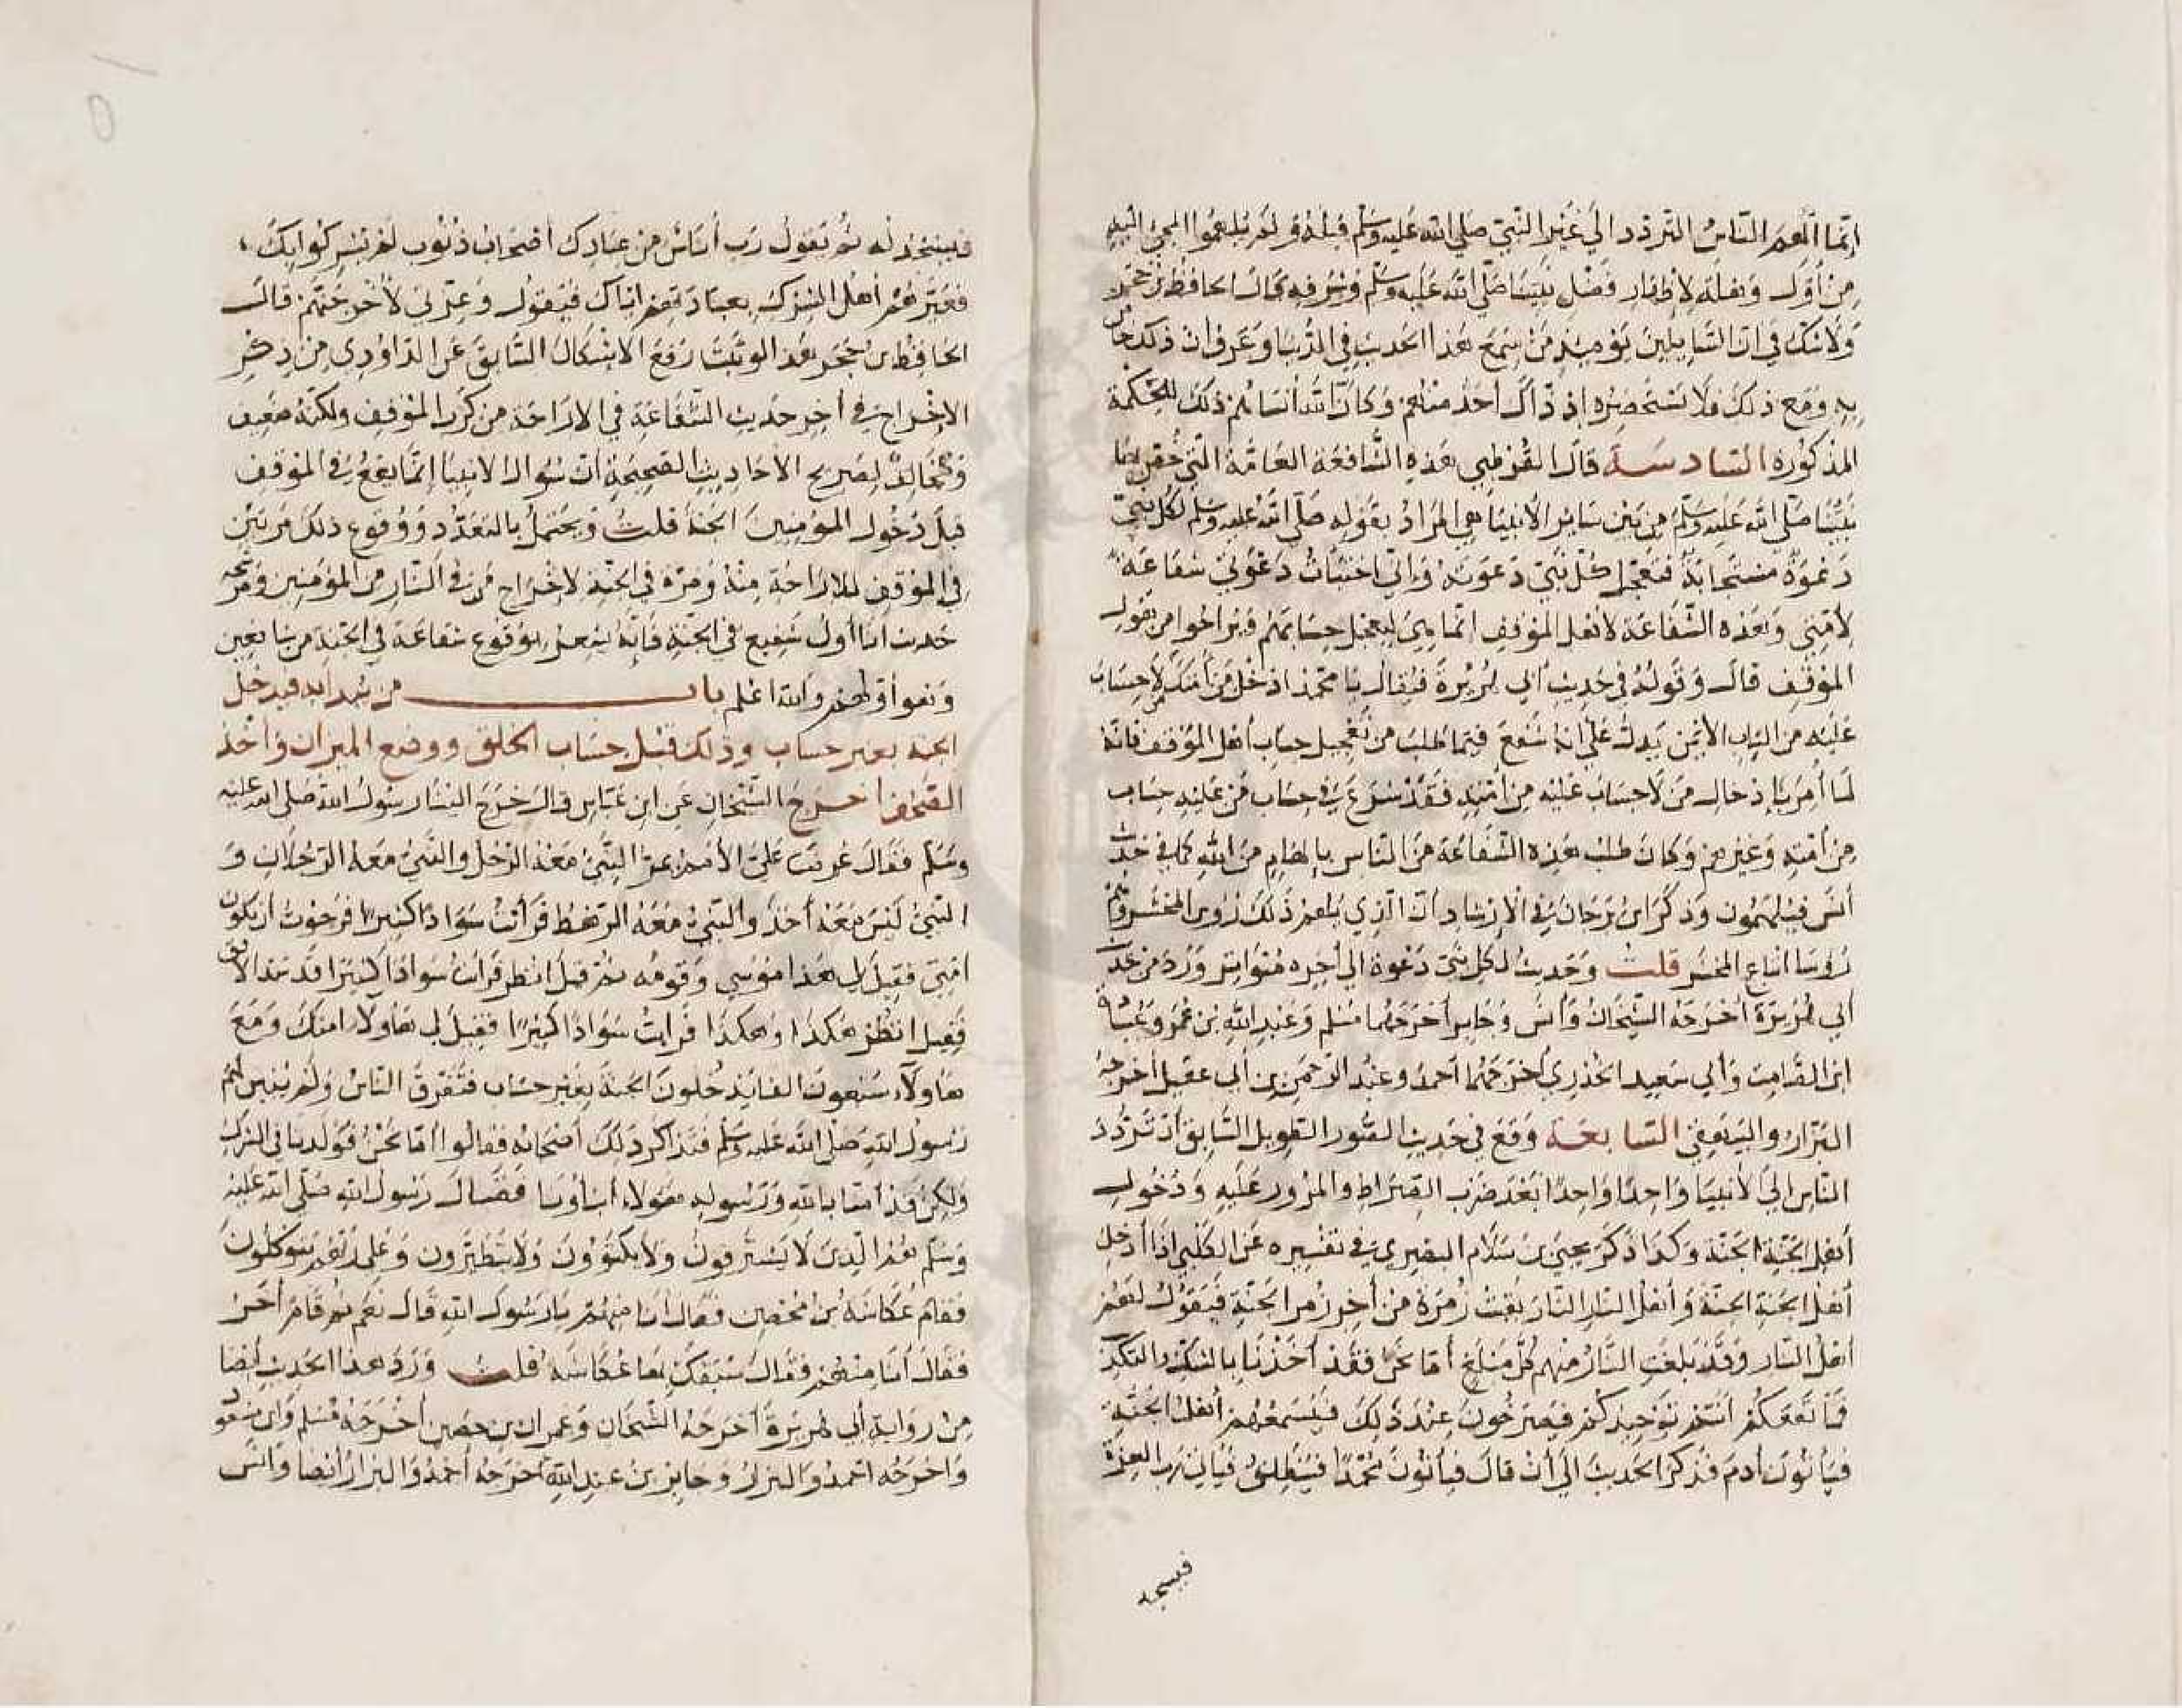 إنما ألهم الناس التردد إلى غير النبي صلى الله عليه وسلم قبله ولم يلهموا المجئ إليه
من أول وهلة لإظهار فضل نبينا صلى الله عليه وسلم وشرفه قال الحافظ بن حجر
ولا شك في ان السايلين يوميذ من سمع هذا الحديث في الدنيا وعرف ان ذلك خاص
به ومع ذلك فلا يستحضره إذ ذاك أحد منهم وكان الله أنساهم ذلك للحكمة
المذكورة السادسة قال القرطبي هذه الشافعة العامة التي خص بها
نبينا صلى الله عليه وسلم من بين ساير الأنبيا هي المراد بقوله صلى الله عليه وسلم لكل نبي
دعوة مستجابة فتعجل كل نبي دعوته وإني اختبأت دعوتي شفاعة
لأمتي وهذه الشفاعة لأهل الموقف انما هي ليعجل حسابهم ويراحوا من هول
الموقف قال وقوله في حديث أبي هريرة فيقال يا محمد ادخل من أمتك من لا حساب
عليه من الباب الأيمن يدل على انه شفع فيما طلب من تعجيل حساب أهل الموقف فانه
لما أمر بإدخال من لا حساب عليه من أمته فقد شرع في حساب من عليه حساب
من أمته وغيرهم وكان طلب هذه الشفاعة من الناس بإلهام من الله كما في حديث
أنس فيلهمون وذكر ابن برجان في الإرشاد أن الذي يلهم ذلك رؤس المحشر وهم
رؤسا اتباع المحشر قلت وحديث لكل نبي دعوة إلى أخره متواتر ورد من حديث
أبي هريرة أخرجه الشيخان وأنس وجابر أخرجهما مسلم وعبد الله بن عمر وعبادة
ابن الصامت وأبي سعيد الخدري أخرجهما أحمد وعبد الرحمن بن أبي عقيل أخرجه
البزار والبيهقي السابعة وقع في حديث الصور الطويل السابق أن تردد
الناس إلى الأنبيا واحدا واحدا بعد ضرب الصراط والمرور عليه ودخول
أهل الجنة الجنة وكذا ذكر يحيى بن سلام البصري في تفسيره عن الكلبي اذا أدخل
أهل الجنة الجنة وأهل النار النار بقيت زمرة من أخر زمر الجنة فيقول لهم
أهل النار وقد بلغت النار منهم كل مبلغ أما نحن فقد أخذنا بالشك والتكذيب
فما نفعكم أنتم توحيدكم فيصرخون عند ذلك فيسمعهم أهل الجنة
فيأتون أدم فذكر الحديث إلى أن قال فيأتون محمدا فينطلق فيأتي رب العزة
فيسجد
فيسجد له ثم يقول رب أناس من عبادك أصحاب ذنوب لم يشركوا بك
فعيرهم أهل الشرك بعبادتهم اياك فيقول وعزتي لأخرجنهم قال
الحافظ بن حجر هذا لو ثبت رفع الاشكال السابق عن الداودي من ذكر
الإخراج في أخر حديث الشفاعة في الاراحة من كرب الموقف ولكنه ضعيف
ومخالف لصريح الاحاديث الصحيحة ان سوال الانبيا إنما يقع في الموقف
قبل دخول المؤمنين الجنة قلت ويحتمل بالتعدد ووقوع ذلك مرتين
في الموقف للاراحة منه ومرة في الجنة لاخراج من في النار من المؤمنين
حديث انا أول شفيع في الجنة فإنه يشعر بوقوع شفاعة في الجنة من شافعين
وهو أولهم والله اعلم باب من شهد انه يدخل
الجنة بغير حساب وذلك قبل حساب الخلق ووضع الميزان وأخذ
الصحف أخرج الشيخان عن ابن عباس قال خرج الينا رسول الله صلى الله عليه
وسلم فقال عرضت علي الأمم يمر النبي معه الرجل والنبي معه الرجلان و
النبي ليس معه أحد والنبي معه الرهط فرأيت سوادا كثيرا فرجوت أن يكون
امتي فقيل لي هذا موسى وقومه ثم قيل انظر فرأيت سوادا كثيرا قد سد الأفق
فقيل انظر هكذا وهكذا فرايت سوادا كثيرا فقيل لي هاولاء امتك ومع
هاولاء سبعون الفا يدخلون الجنة بغير حساب فتفرق الناس ولم يبين لهم
رسول الله صلى الله عليه وسلم فتذاكر ذلك أصحابه فقالوا أما نحن فولدنا في الشرك
ولكن قد أمنا بالله ورسوله هولاء أبناؤنا فقال رسول الله صلى الله عليه
وسلم هم الذين لا يسترقون ولا يكتوون ولا يتطيرون وعلى ربهم يتوكلون
فقام عكاشة بن محصن فقال انا منهم يا رسول الله قال نعم ثم قام أخر
فقال أنا منهم فقال سبقك بها عكاشة قلت ورد هذا الحديث أيضا
من رواية أبي هريرة أخرجه الشيخان وعمران بن حصين أخرجه مسلم وابن مسعود
واخرجه احمد والبزار وجابر بن عبد الله أخرجه أحمد والبزار أيضا وانس